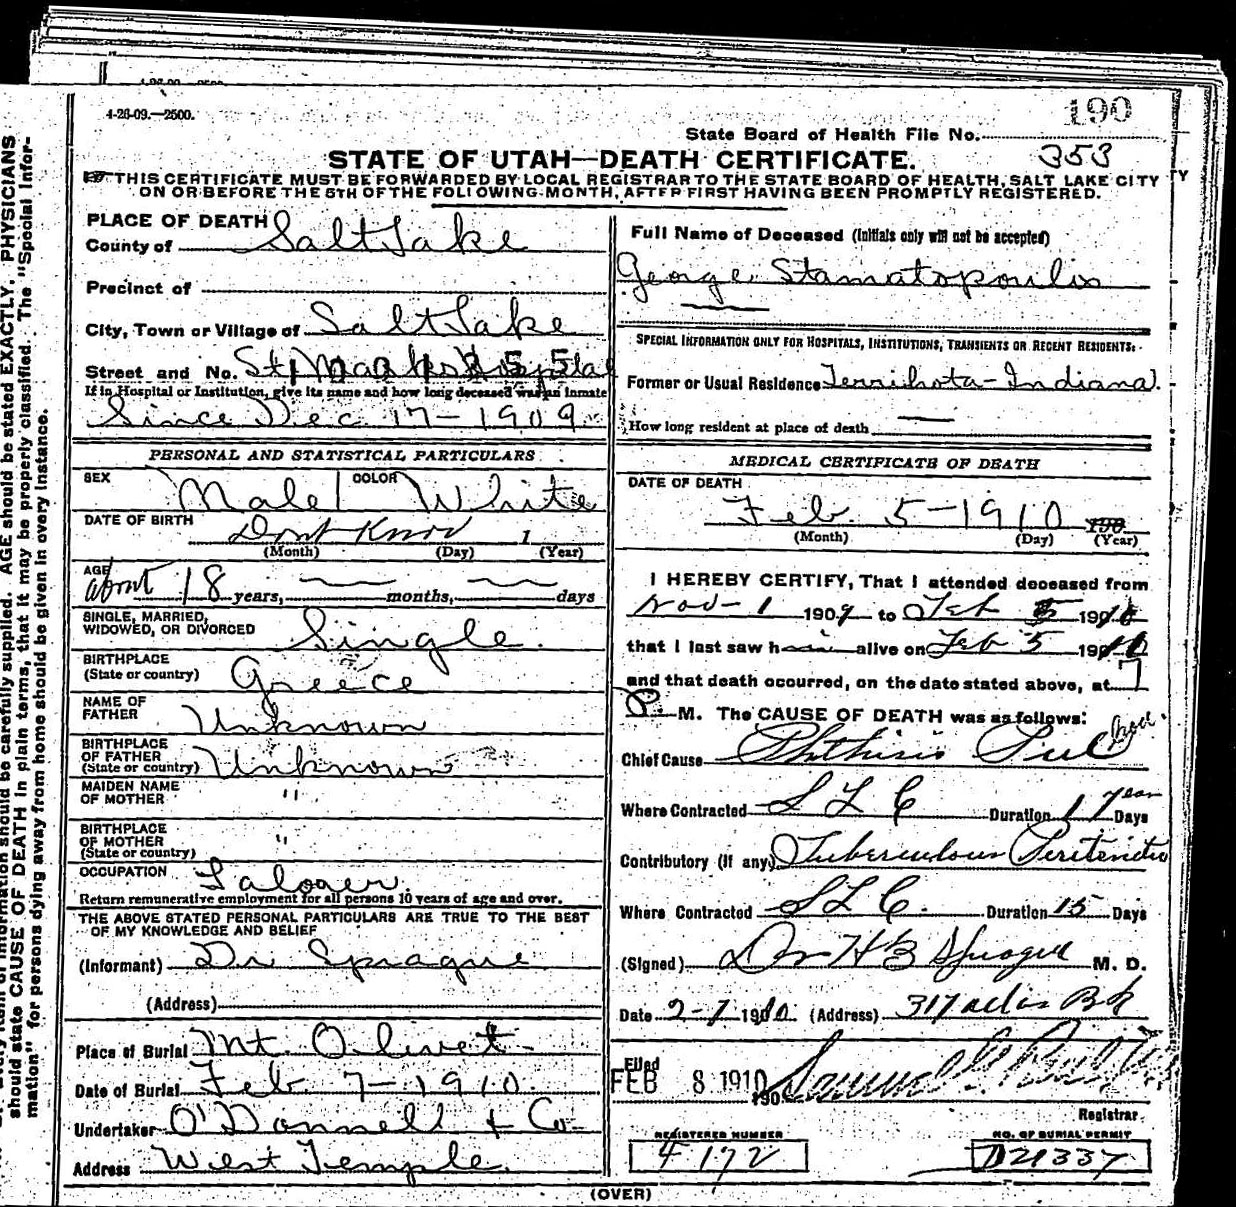 4-26-09.—2500.
190
State Board of Health File No.
353
STATE OF UTAH—DEATH CERTIFICATE.
THIS CERTIFICATE MUST BE FORWARDED BY LOCAL REGISTRAR TO THE STATE BOARD OF HEALTH, SALT LAKE CITY
ON OR BEFORE THE 5TH OF THE FOLLOWING MONTH, AFTER FIRST HAVING BEEN PROMPTLY REGISTERED.
PLACE OF DEATH
County of Salt Lake
Precinct of
City, Town or Village of Salt Lake
Street and No. St Marks Hospital
If in Hospital or Institution, give its name and how long deceased was an inmate
Since Dec 17-1909
PERSONAL AND STATISTICAL PARTICULARS
SEX Male COLOR White
DATE OF BIRTH Dont Know 1
(Month) (Day) (Year)
AGE about 18 years, months, days
SINGLE, MARRIED,
WIDOWED, OR DIVORCED Single
BIRTHPLACE
(State or country) Greece
NAME OF
FATHER Unknown
BIRTHPLACE
OF FATHER
(State or country) Unknown
MAIDEN NAME
OF MOTHER "
BIRTHPLACE
OF MOTHER
(State or country) "
OCCUPATION Laborer.
Return remunerative employment for all persons 10 years of age and over.
THE ABOVE STATED PERSONAL PARTICULARS ARE TRUE TO THE BEST
OF MY KNOWLEDGE AND BELIEF
(Informant) Dr Sprague
(Address)
Place of Burial Mt. Olivet
Date of Burial Feb 7-1910.
Undertaker O'Donnell + Co
Address West Temple.
Full Name of Deceased (Initials only will not be accepted)
George Stamatopoulos
SPECIAL INFORMATION ONLY FOR HOSPITALS, INSTITUTIONS, TRANSIENTS OR RECENT RESIDENTS:
Former or Usual Residence Terrihota-Indiana.
How long resident at place of death
MEDICAL CERTIFICATE OF DEATH
DATE OF DEATH
Feb. 5-1910 190
(Month) (Day) (Year)
I HEREBY CERTIFY, That I attended deceased from
Nov-1 1909 to Feb 5 1910
that I last saw him alive on Feb 5 1910
and that death occurred, on the date stated above, at 7
P. M. The CAUSE OF DEATH was as follows:
Chief Cause Phthisis Pul
Where Contracted S L C Duration 1 year Days
Contributory (if any) Tuberculous Peritonitis
Where Contracted S L C. Duration 15 Days
(Signed) Dr H B Sprague M. D.
Date 2-7 1910 (Address) 317
Filed
FEB 8 1910 190
Registrar
REGISTERED NUMBER
F 172
NO. OF BURIAL PERMIT
D21337
(OVER)
should state CAUSE OF DEATH in plain terms, that it may be properly classified. The "Special Infor-
mation" for persons dying away from home should be given in every instance.
information should be carefully supplied. AGE should be stated EXACTLY. PHYSICIANS